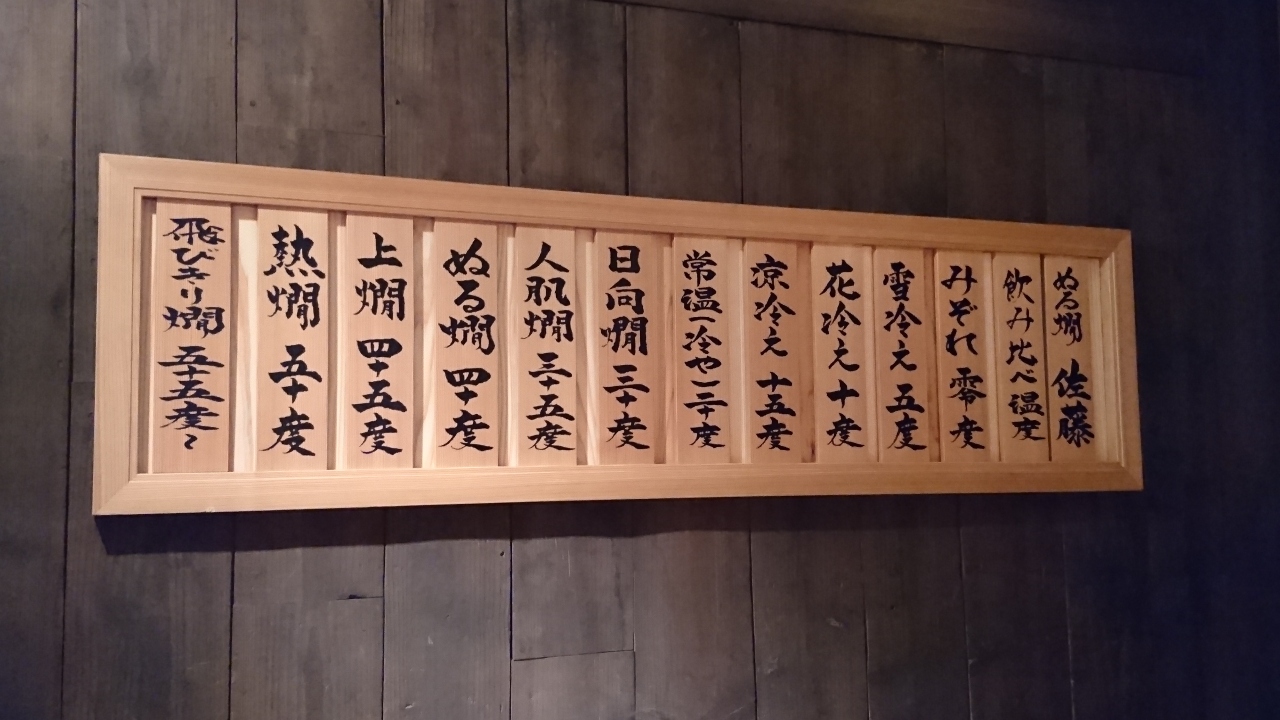 ぬる燗 佐藤
飲み比べ温度
みぞれ 零度
雪冷え 五度
花冷え 十度
涼冷え 十五度
常温(冷や)二十度
日向燗 三十度
人肌燗 三十五度
ぬる燗 四十度
上燗 四十五度
熱燗 五十度
飛びきり燗 五十五度〜